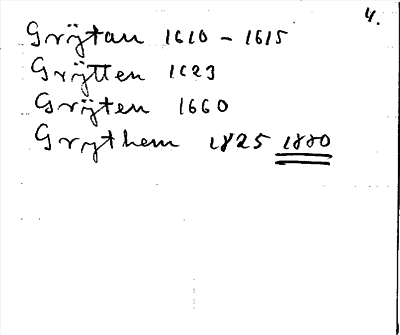 4.
Grÿtan 1610 - 1615
Grÿtten 1623
Grÿten 1660
Grythem 1825 1880